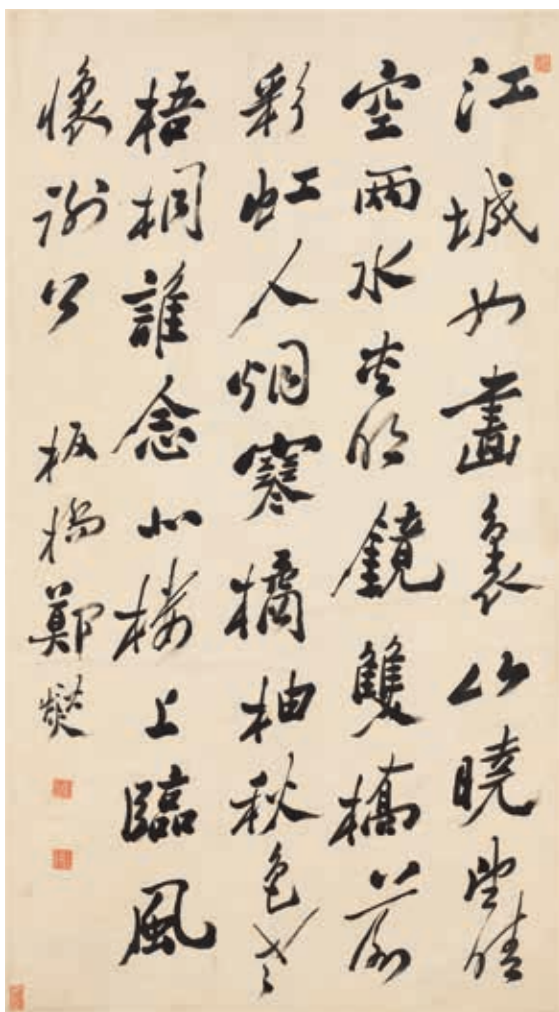 江城如畫裏山曉望晴
空兩水夾明鏡雙橋落
彩虹人烟寒橘柚秋色老
梧桐誰念北楼上臨風
懷謝公 板橋鄭燮